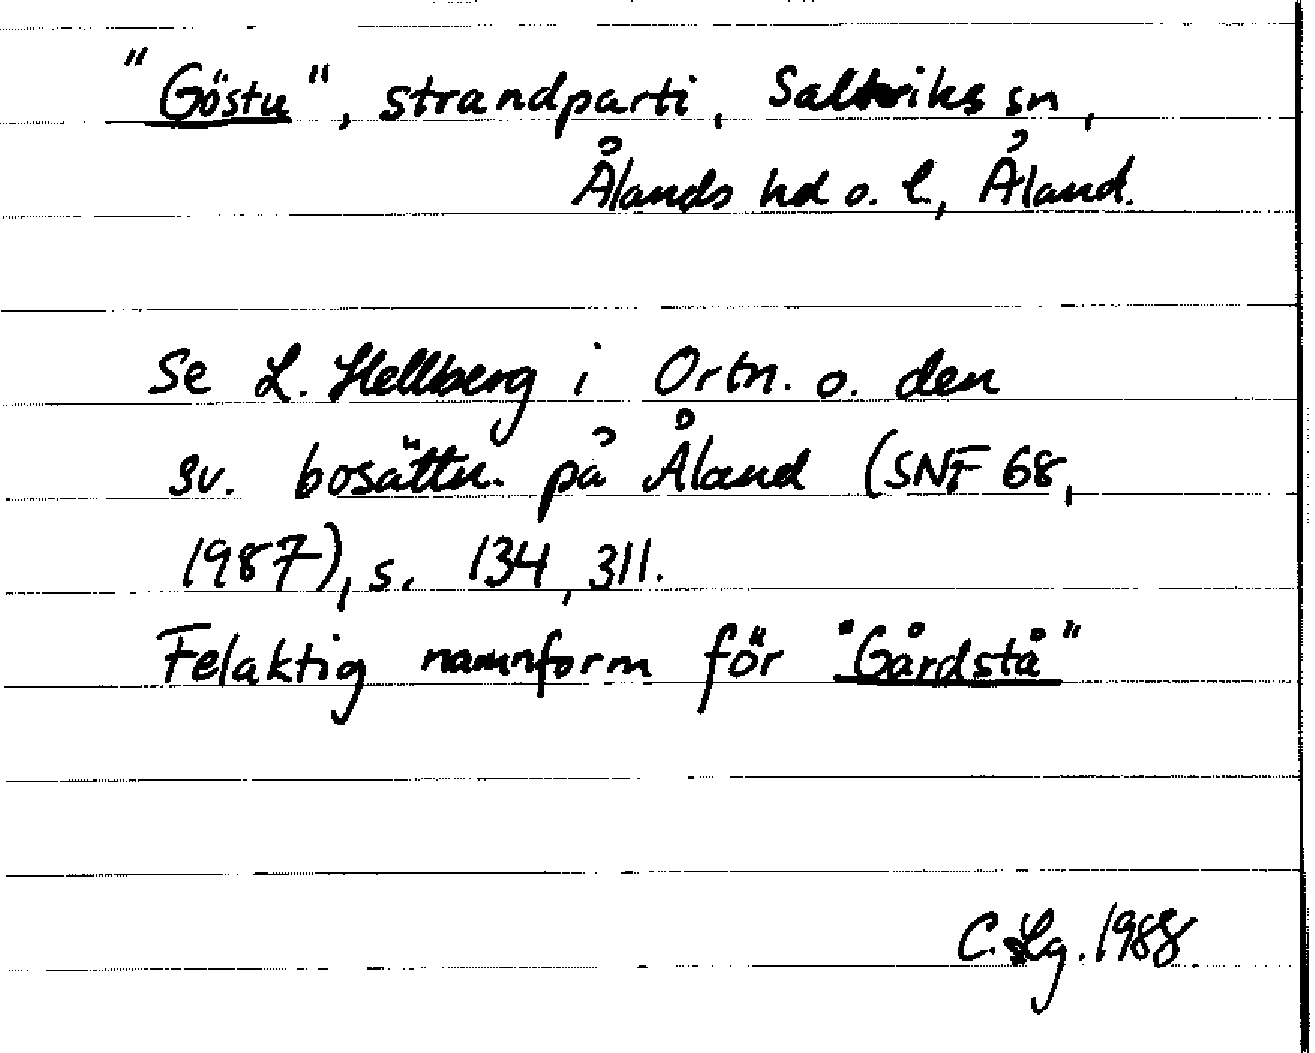 "Göstu", strandparti, Saltviks sn,
Ålands hd o. l, Åland.
Se L. Hellberg i Ortn. o. den
sv. bosättn. på Åland (SNF 68,
1987), s. 134, 311.
Felaktig namnform för "Gårdstå"
C. Lg. 1988